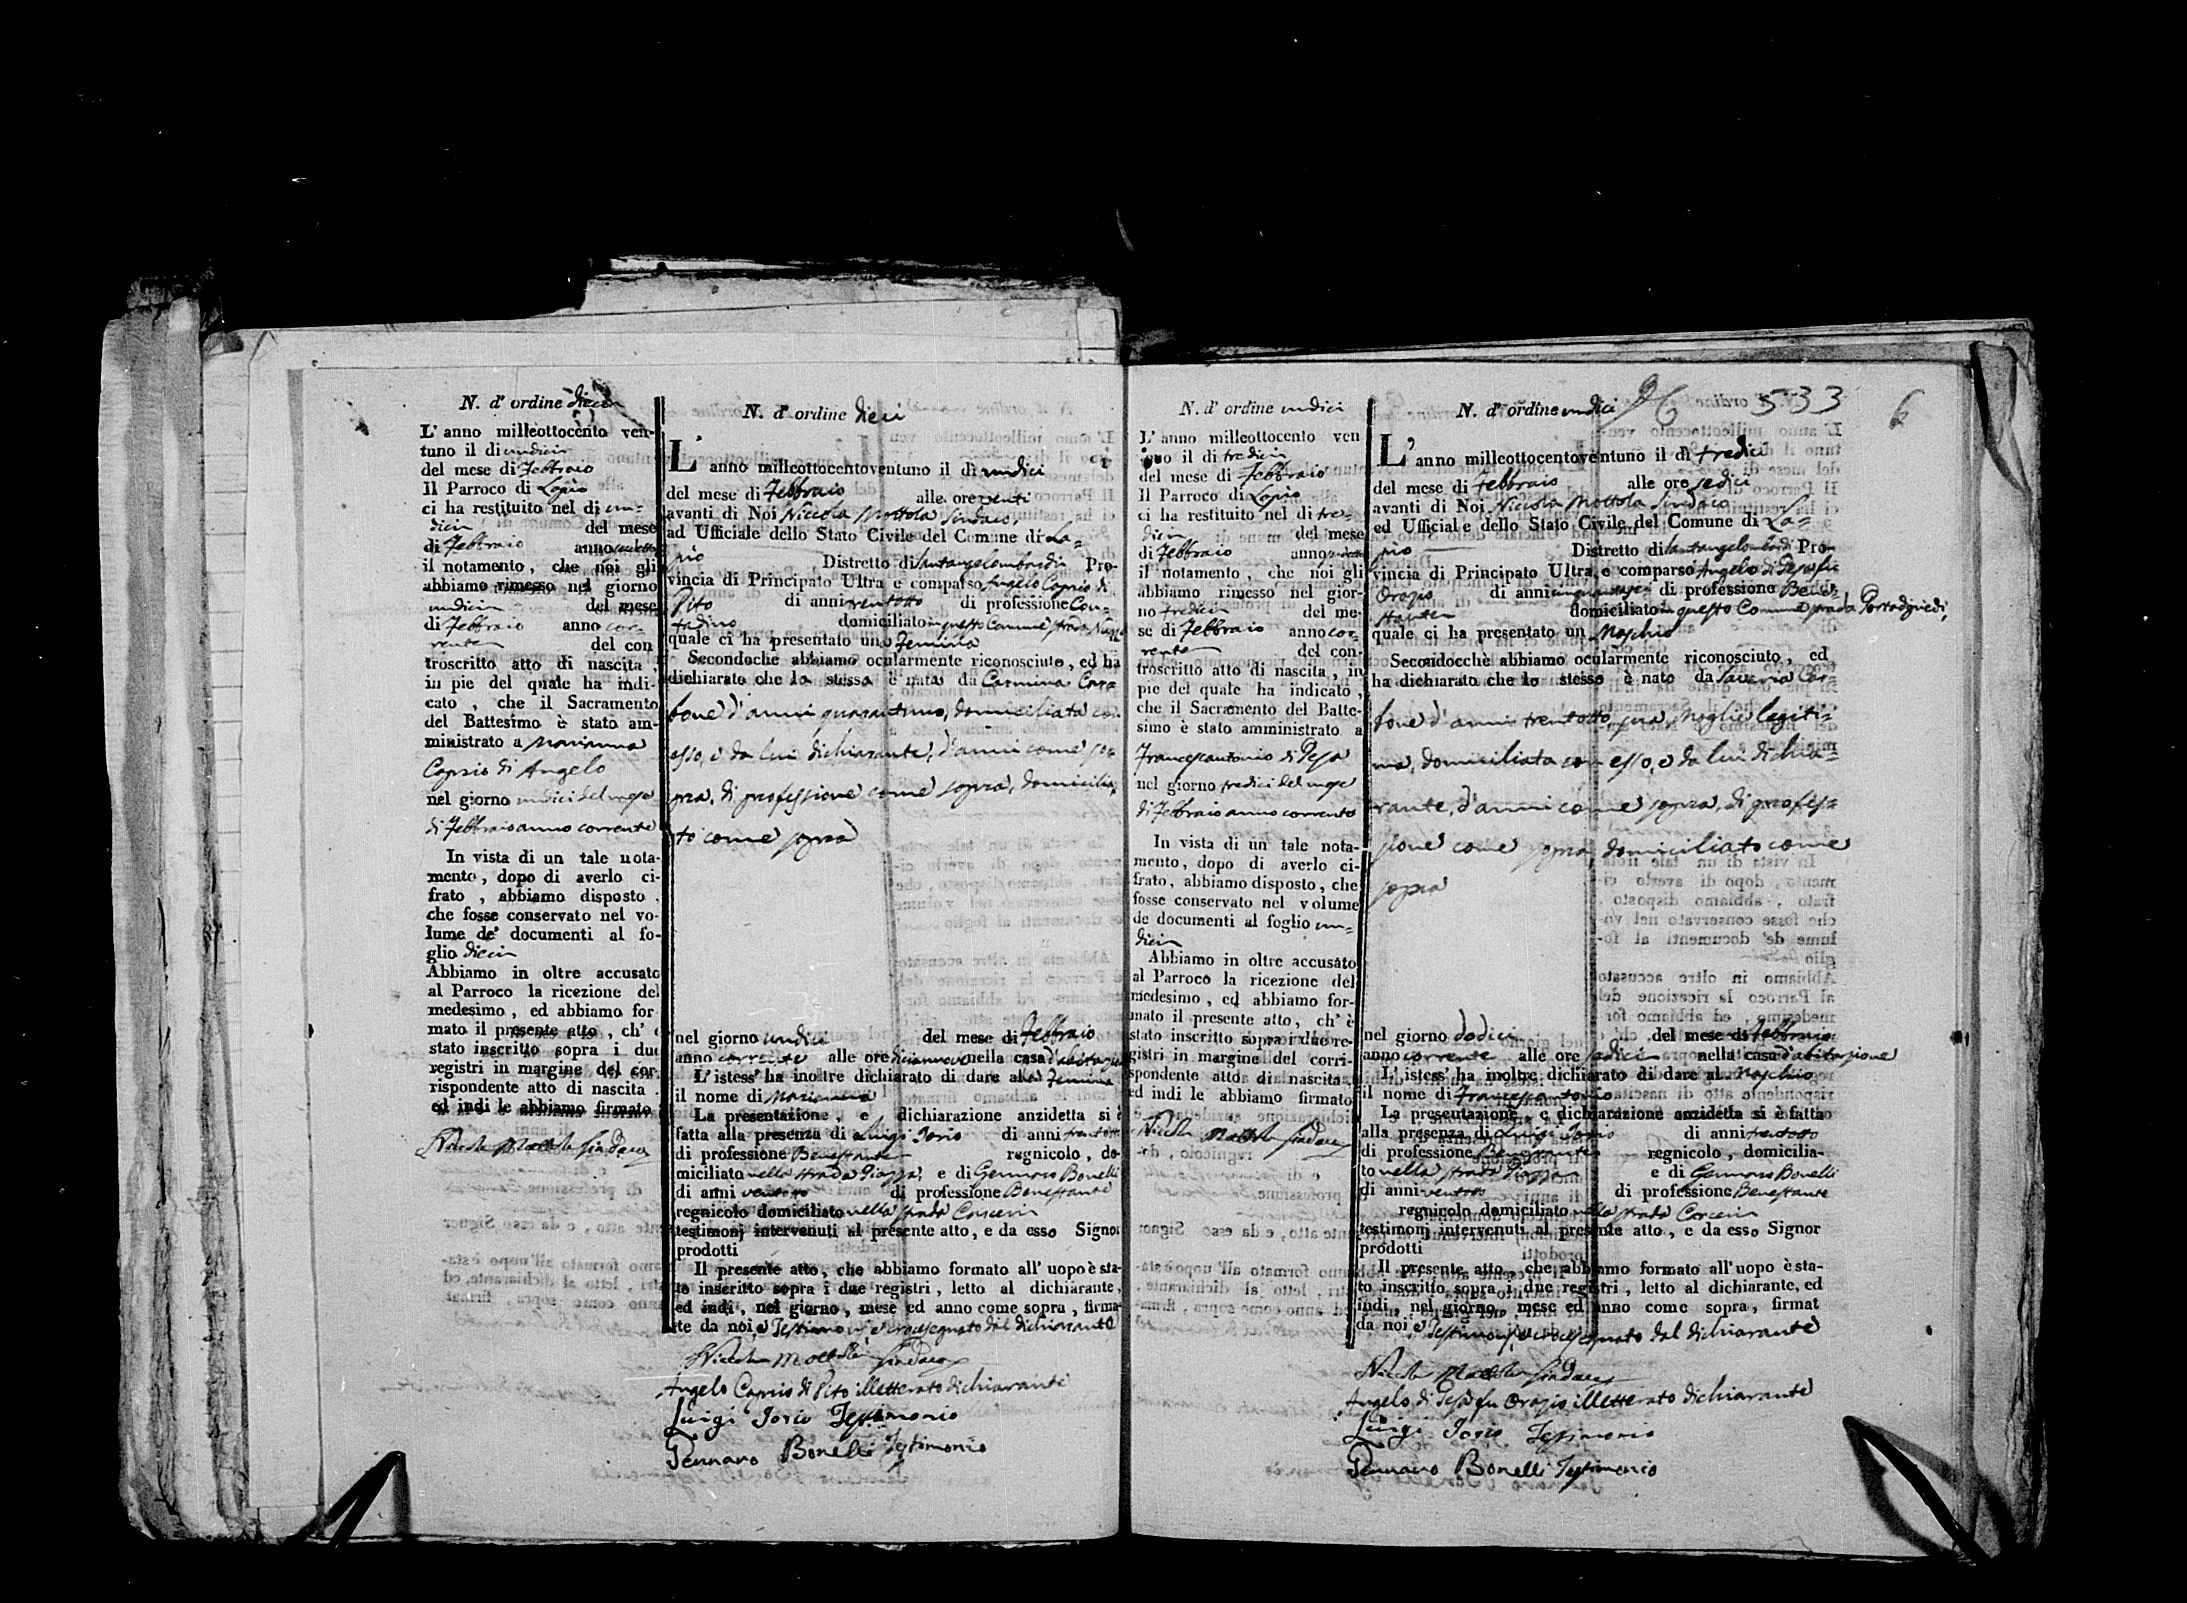 N. d' ordine dieci
L' anno milleottocento ven-
tuno il di undici
del mese di Febbraio
Il Parroco di Lapio
ci ha restituito nel di un-
dici del mese
di Febbraio anno
il notamento, che noi gli
abbiamo rimesso nel giorno
undici del mese
di Febbraio anno cor-
rente del con
troscritto atto di nascita,
in pie del quale ha indi-
cato, che il Sacramento
del Battesimo è stato am-
ministrato a Marianna
Caprio di Angelo
nel giorno undici del mese
di Febbraio anno corrente
In vista di un tale nota-
mento, dopo di averlo ci-
frato, abbiamo disposto,
che fosse conservato nel vo-
lume de' documenti al fo-
glio dieci
Abbiamo in oltre accusato
al Parroco la ricezione del
medesimo, ed abbiamo for
mato il presente atto, ch' è
stato inscritto sopra i due
registri in margine del cor
rispondente atto di nascita
ed indi le abbiamo firmato
Nicola Mottola Sindaco
N. d' ordine dieci
L' anno milleottocentoventuno il dì undici
del mese di Febbraio alle ore venti
avanti di Noi Niccola Mottola Sindaco,
ad Ufficiale dello Stato Civile del Comune di La-
pio Distretto di Santangelolombardi Pro-
vincia di Principato Ultra e comparso Angelo Caprio di
Vito di anni trentotto di professione Con-
tadino domiciliato in questo Comune strada
quale ci ha presentato una Femina
Secondochè abbiamo ocularmente riconosciuto, ed ha
dichiarato che la stessa è nata da Carmina Cara
bone d'anni quarantuno, domiciliata con
esso, e da lui dichiarante, d'anni come so-
pra, di professione come sopra, domicilia-
to come sopra
nel giorno undici del mese di Febbraio
anno corrente alle ore diciannove nella casa d'abitazione
L' istess' ha inoltre dichiarato di dare alla Femina
il nome di Marianna
La presentazione, e dichiarazione anzidetta si è
fatta alla presenza di Luigi Iorio di anni trentotto
di professione Benestante regnicolo, do-
miciliato nella strada Piazza, e di Gennaro Bonelli
di anni ventotto di professione Benestante
regnicolo domiciliato nella strada Carceri
testimonj intervenuti al presente atto, e da esso Signor
prodotti
Il presente atto, che abbiamo formato all' uopo è sta-
to inscritto sopra i due registri, letto al dichiarante,
ed indi, nel giorno, mese ed anno come sopra, firma-
te da noi, e Testimonj, e crocesegnato dal dichiarante
Niccola Mottola Sindaco
Angelo Caprio di Vito illetterato dichiarante
Luigi Iorio Testimonio
Gennaro Bonelli Testimonio
N. d' ordine undici
L' anno milleottocento ven
tuno il di tredici
del mese di Febbraio
Il Parroco di Lapio
ci ha restituito nel di tre-
dici del mese
di Febbraio anno
il notamento, che noi gli
abbiamo rimesso nel gior-
no tredici del me-
se di Febbraio anno cor-
rente del con-
troscritto atto di nascita, in
pie del quale ha indicato,
che il Sacramento del Batte-
simo è stato amministrato a
Francescantonio di Pesa
nel giorno tredici del mese
di Febbraio anno corrente
In vista di un tale nota-
mento, dopo di averlo ci-
frato, abbiamo disposto, che
fosse conservato nel volume
de documenti al foglio un-
dici
Abbiamo in oltre accusato
al Parroco la ricezione del
medesimo, ed abbiamo for-
mato il presente atto, ch' è
stato inscritto sopra i due re-
gistri in margine del corri-
spondente atto di nascita
ed indi le abbiamo firmato
Nicola Mottola Sindaco
N. d' ordine undici
533
6
L' anno milleottocentoventuno il dì tredici
del mese di Febbraio alle ore sedici
avanti di Noi Niccola Mottola Sindaco
ed Ufficiale dello Stato Civile del Comune di La-
pio Distretto di Santangelolombardi Pro-
vincia di Principato Ultra e comparso Angelo di Pesa fu
Orazio di anni cinquantasei di professione Bene-
stante domiciliato in questo Comune strada
quale ci ha presentato un Maschio
Secondocchè abbiamo ocularmente riconosciuto, ed
ha dichiarato che lo stesso è nato da Saveria Car-
bone d'anni trentotto sua moglie legiti-
ma, domiciliata con esso, e da lui dichia-
rante, d'anni come sopra, di profes-
sione come sopra domiciliato come
sopra
nel giorno dodici del mese di Febbraio
anno corrente alle ore sedici nella casa d'abitazione
L' istess' ha inoltre dichiarato di dare al Maschio
il nome di Francescantonio
La presentazione, e dichiarazione anzidetta si è fatta
alla presenza di Luigi Iorio di anni trentotto
di professione Benestante regnicolo, domicilia-
to nella strada Piazza e di Gennaro Bonelli
di anni ventotto di professione Benestante
regnicolo domiciliato nella strada Carceri
testimonj intervenuti al presente atto, e da esso Signor
prodotti
Il presente atto, che abbiamo formato all' uopo è sta-
to inscritto sopra i due registri, letto al dichiarante, ed
indi, nel giorno, mese ed anno come sopra, firmat
da noi e Testimonj, e crocesegnato dal dichiarante
Nicola Mottola Sindaco
Angelo di Pesa fu Orazio illetterato dichiarante
Luigi Iorio Testimonio
Gennaro Bonelli Testimonio